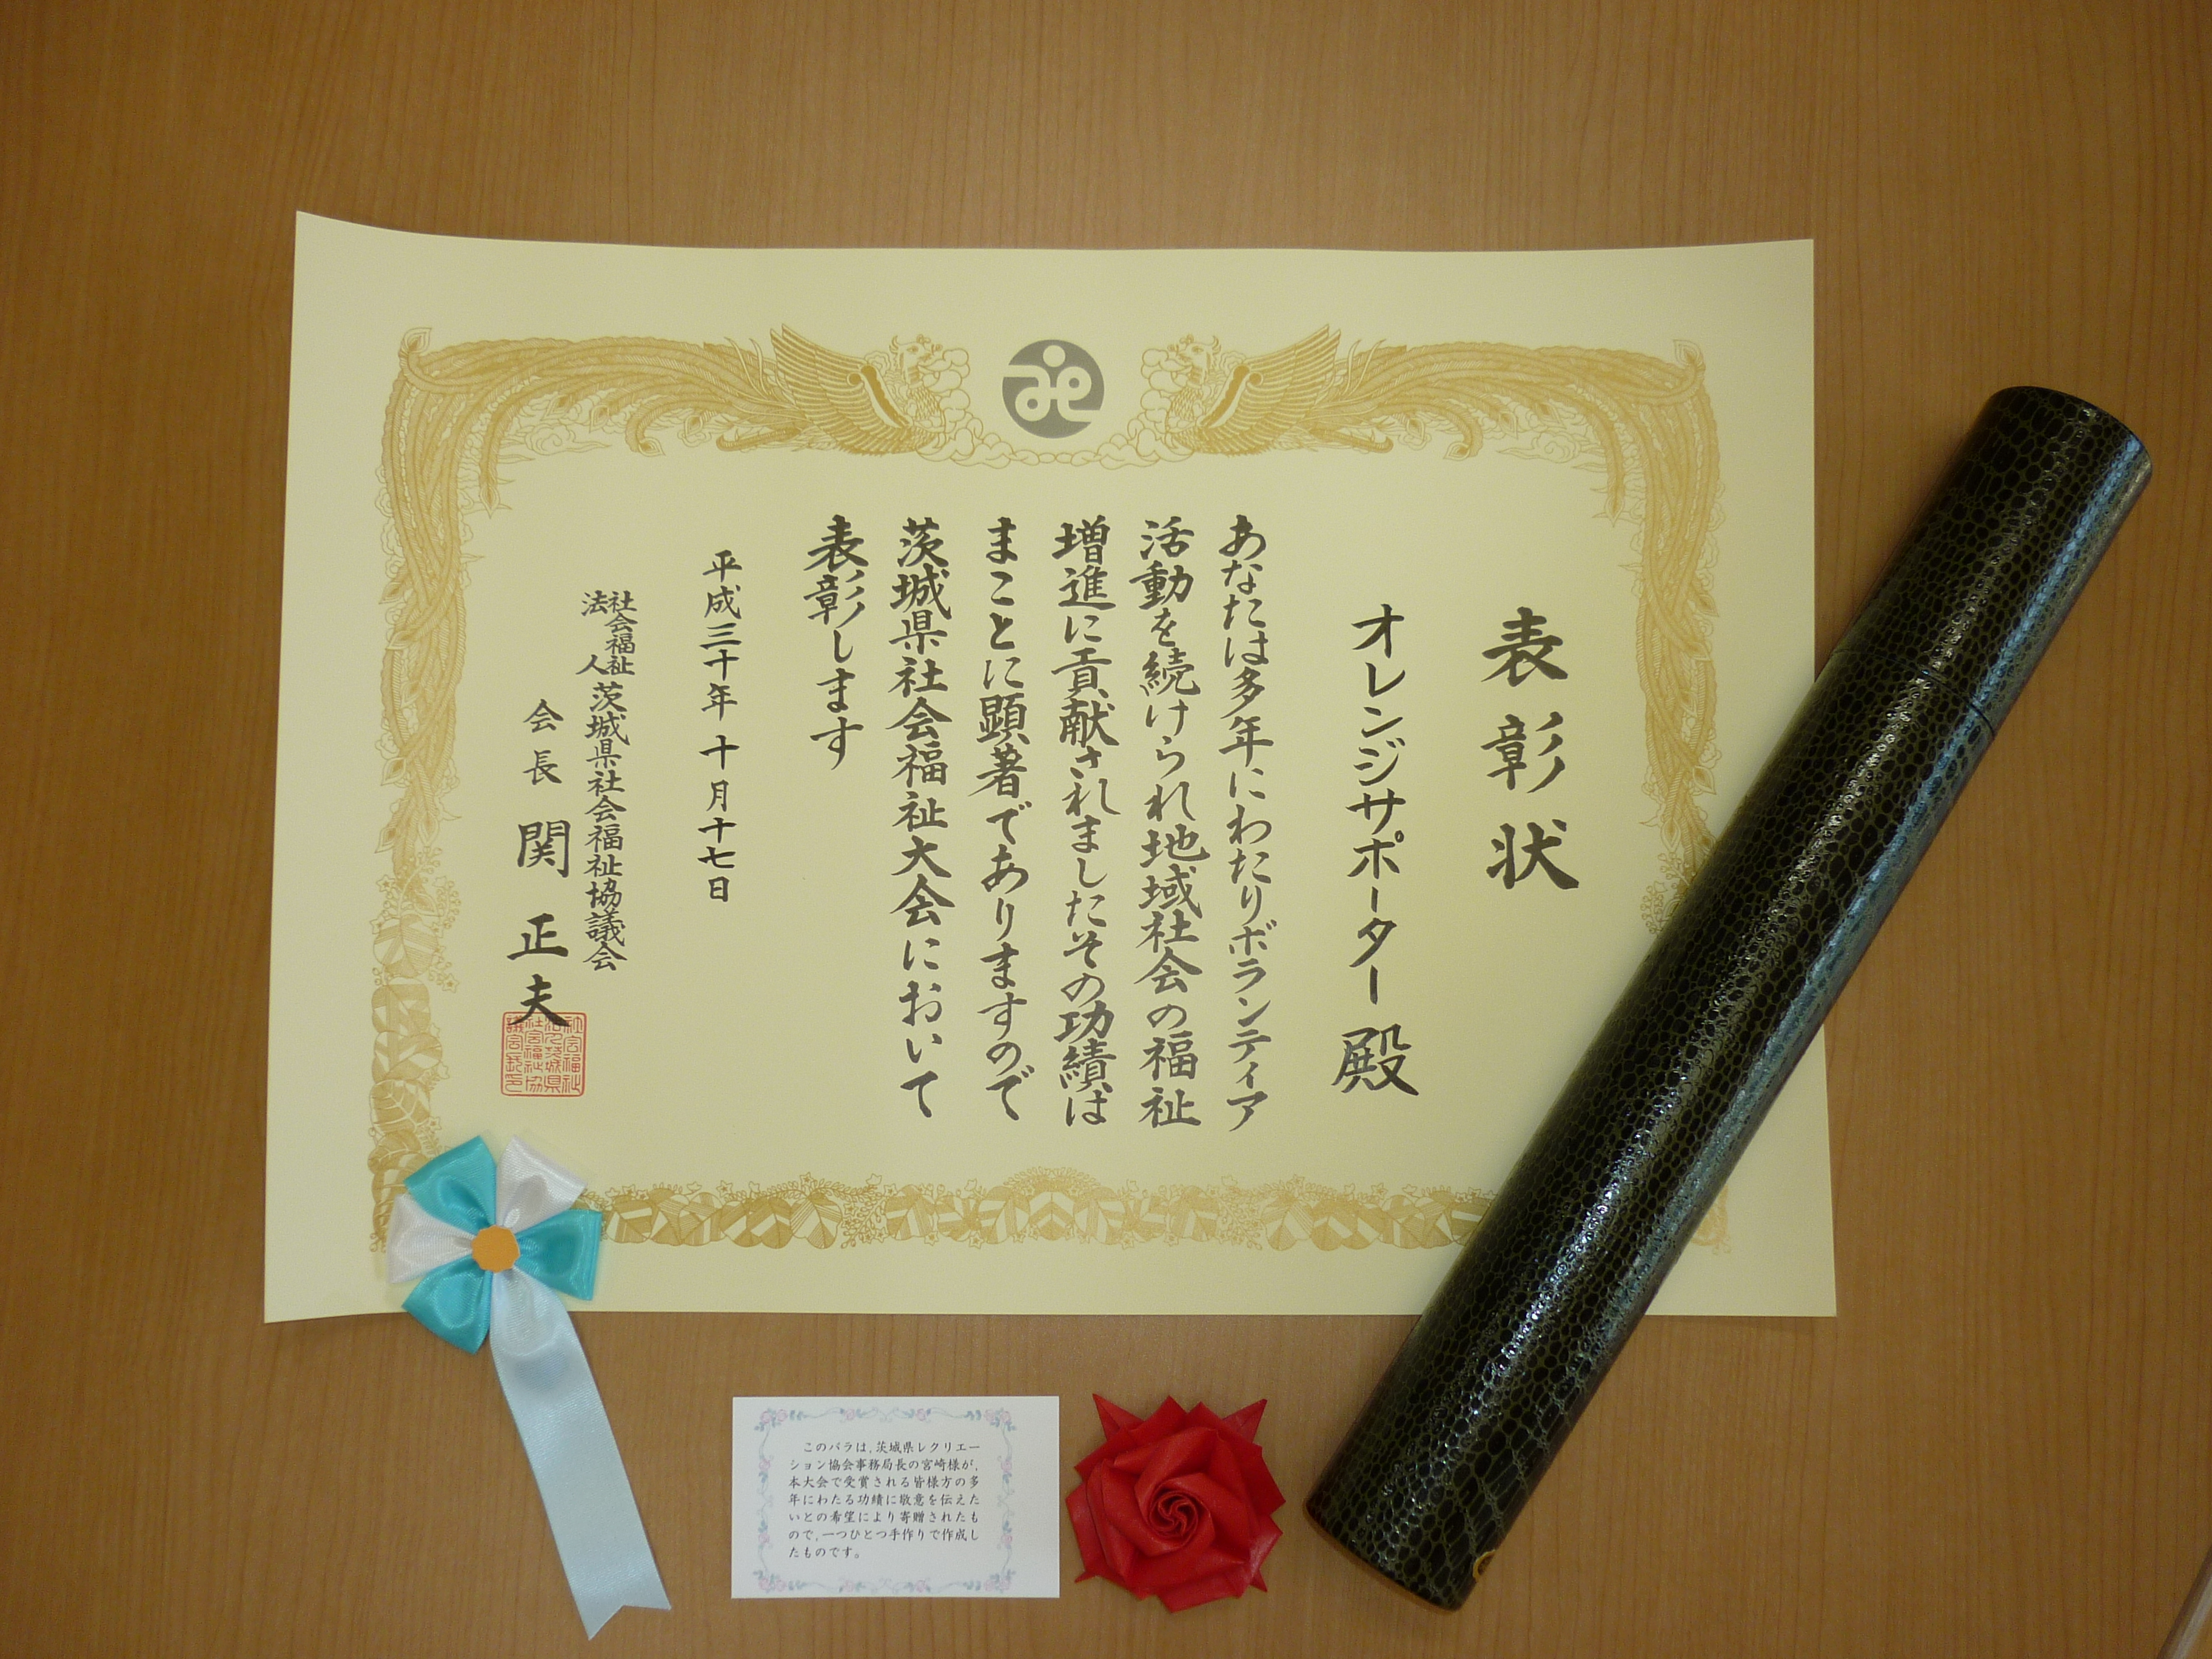 表彰状
オレンジサポーター 殿
あなたは多年にわたりボランティア
活動を続けられ地域社会の福祉
増進に貢献されましたその功績は
まことに顕著でありますので
茨城県社会福祉大会において
表彰します
平成三十年十月十七日
社会福祉法人 茨城県社会福祉協議会
会長 関正夫
このバラは,茨城県レクリエー
ション協会事務局長の宮崎様が,
本大会で受賞される皆様方の多
年にわたる功績に敬意を伝えた
いとの希望により寄贈されたも
ので,一つひとつ手作りで作成し
たものです。